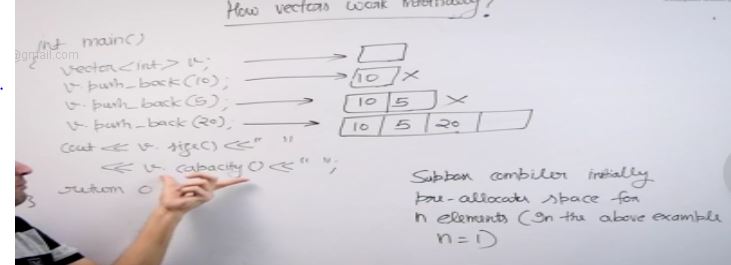 How vectors work internally?
int main()
@gmail.com
{
vector<int> v;
v.push_back(10);
10 X
v.push_back(5);
10 5 X
v.push_back(20);
10 5 20
cout << v.size() << " "
<< v.capacity() << " ";
return 0
}
Suppose compiler initially
pre-allocates space for
n elements (In the above example
n=1)